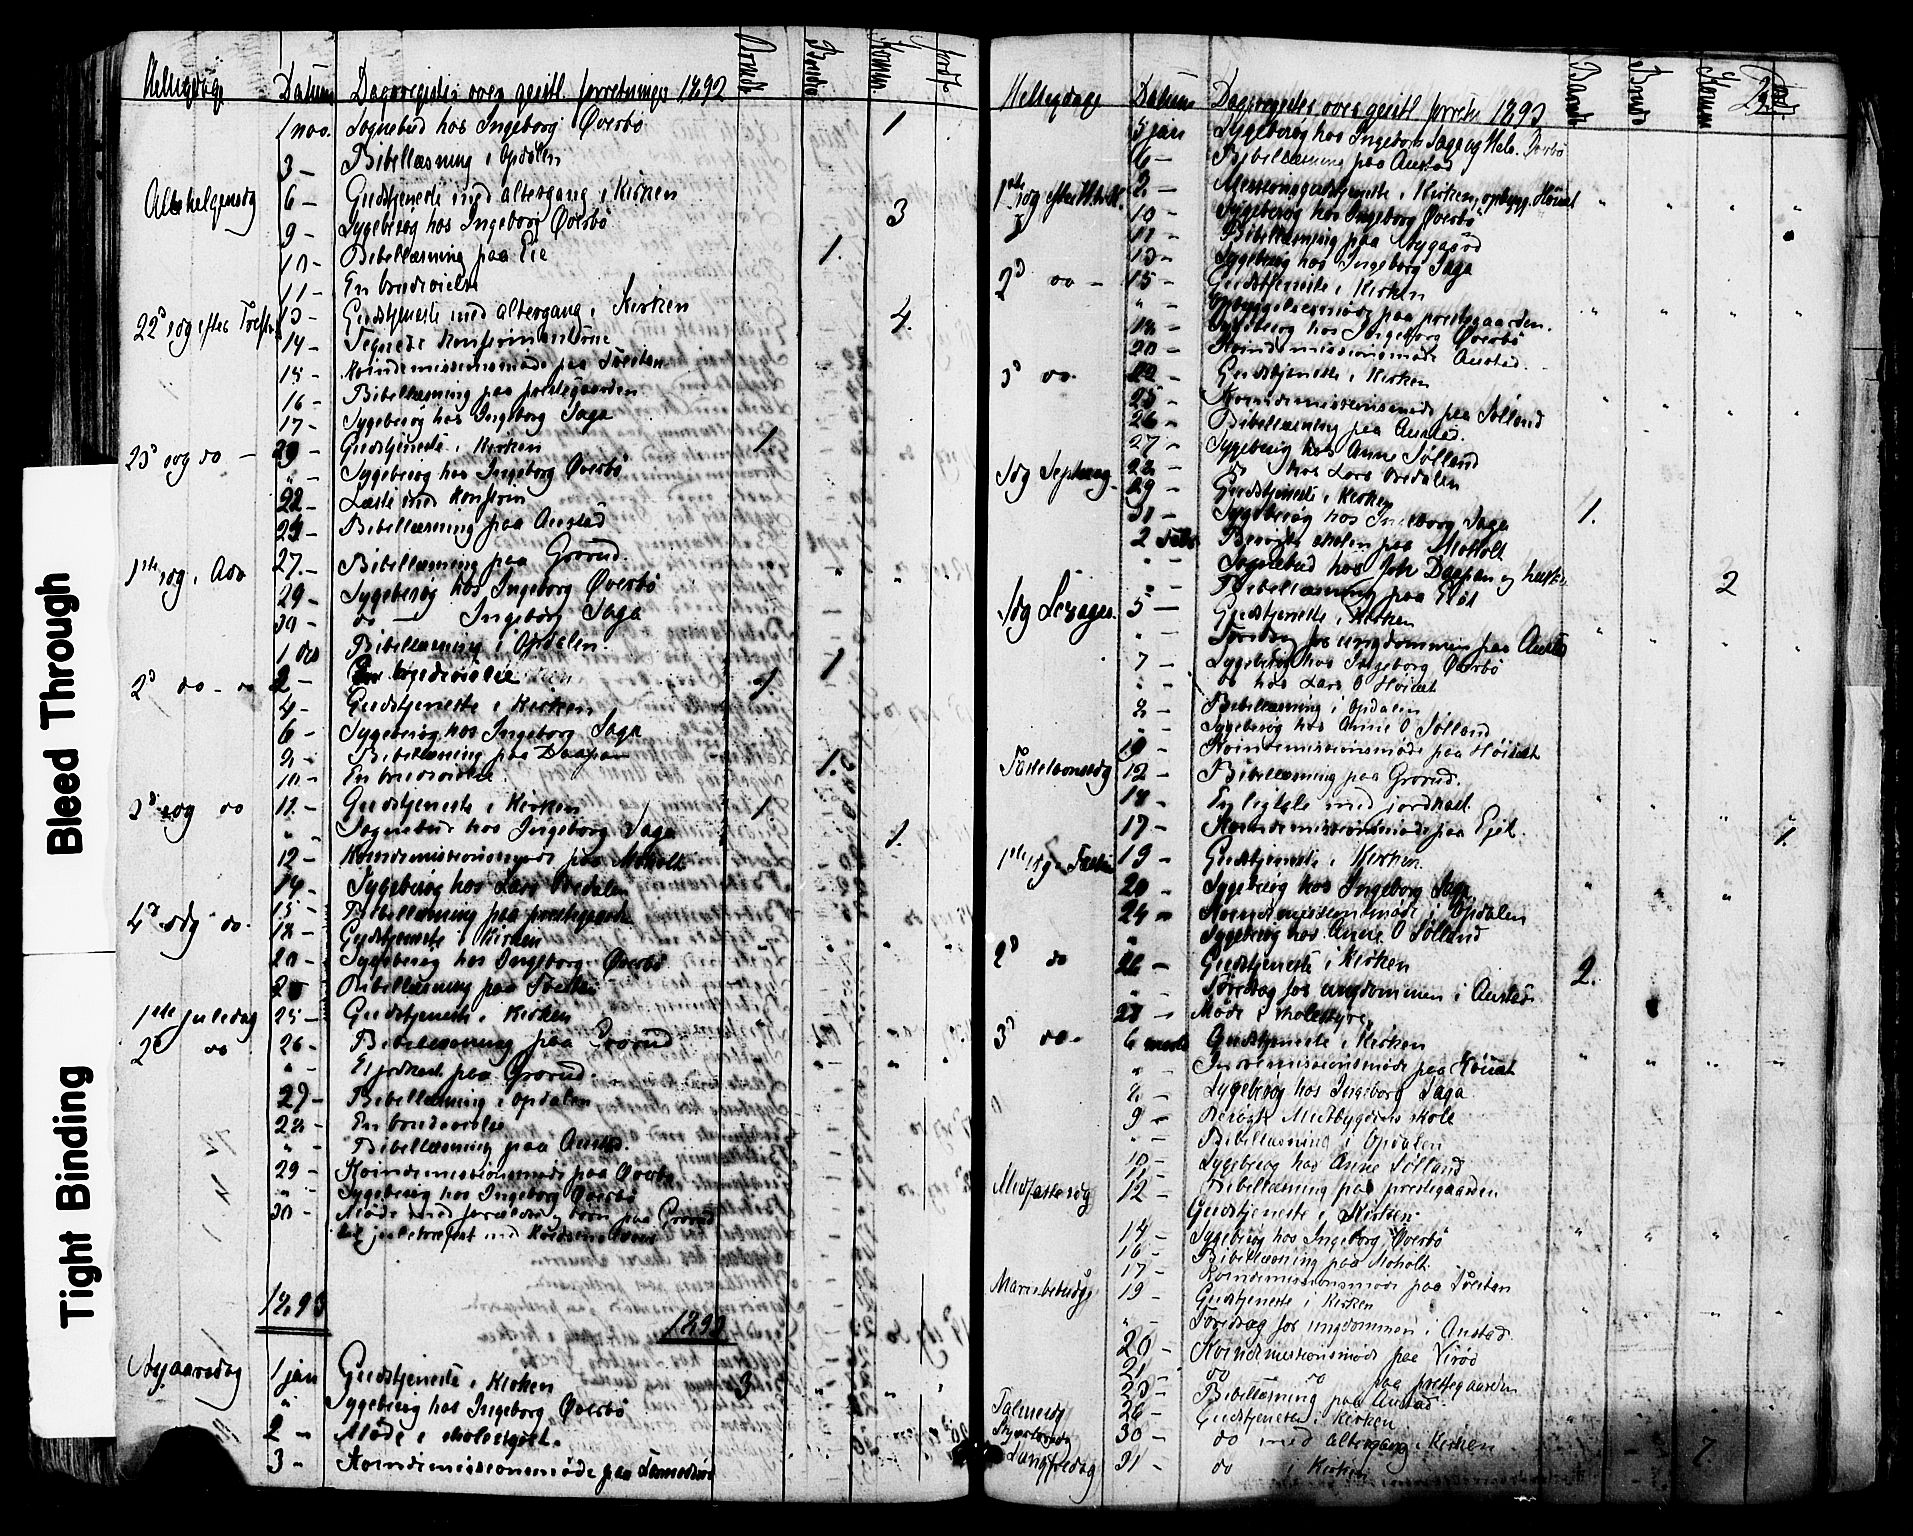 Bleed Through
Tight Binding
Helligdage Datum Dagregister over geistl. forretninger 1892
1 nov. Sognebud hos Ingeborg Øverbø 1
3 - Bibellæsning i Opdalen
Allehelgensdg 6 - Gudstjeneste med altergang i Kirken 3
9 - Sygebesøg hos Ingeborg Øverbø
10 - Bibellæsning paa Eie
11 - En brudevielse 1.
22d sdg efter Trefk. 13 - Gudstjeneste med altergang i Kirken 4.
14 - Konfirmanterne
15 - Kvindemissionsmøde paa Tveiten
16 - Bibellæsning paa prestegaarden
17 - Sygebesøg hos Ingeborg Saga
23d sdg do - 20 - Gudstjeneste i Kirken 1
" - Sygebesøg hos Ingeborg Øverbø
22 - Læste med Konfirm
24 - Bibellæsning paa Austad
1ste sdg i Adv 27 - Bibellæsning paa Grorud.
29 - Sygebesøg hos Ingeborg Øverbø
30 - do - Ingeborg Saga
1 dec Bibellæsning i Opdalen.
2d do - do 2 - En brudevielse 1
4 - Gudstjeneste i Kirken 1.
6 - Sygebesøg hos Ingeborg Saga
9 - Bibellæsning paa Daapan
10 - En brudevielse. 1.
3d sdg do 11 - Gudstjeneste i Kirken 1.
" Sognebud hos Ingeborg Saga 1.
12 - Kvindemissionsmøde paa Moholt
14 - Sygebesøg hos Lars Bredalen
15 - Bibellæsning paa prestegaarden
4d sdg do. 18 - Gudstjeneste i Kirken
20 - Sygebesøg hos Ingeborg Øverbø
Bibellæsning paa Tveiten
1ste juledag 25 - Gudstjeneste i Kirken
2d do 26 - Bibellæsning paa Grorud
" - Et jordkast paa Grorud.
27 - Bibellæsning i Opdalen
28 - En brudevielse
" - Bibellæsning paa Austad.
29 - Kvindemissionsmøde paa Øverbø
" - Sygebesøg hos Ingeborg Øverbø
30 - Møde med forældre og børn paa Grorud
1893
1893
Nyaarsdag 1 jan Gudstjeneste i Kirken 3
" Sygebesøg hos Ingeborg Øverbø
2 - Møde i skolestyret.
3 - Kvindemissionsmøde paa
Helligdage Datum Dagregister over geistl forretn 1893
5 jan Sygebesøg hos Ingeborg Saga og
6 - Bibellæsning paa Austad
8 - Missionsgudstjeneste i Kirken,
10 - Sygebesøg hos Ingeborg Øverbø
11 - Bibellæsning paa Nygaard
13 - Sygebesøg hos Ingeborg Saga
2d do - 15 - Gudstjeneste i Kirken
" - Opbyggelsesmøde paa prestegaarden.
18 - Sygebesøg hos Ingeborg Øverbø
20 - Kvindemissionsmøde Austad.
3d do. 22 - Gudstjeneste i Kirken
25 - Kvindemissionsmøde paa Sølland
26 - Bibellæsning paa Austad.
27 - Sygebesøg hos Anne Sølland
28 - do hos Lars Bredalen
Sdg Septuag. 29 - Gudstjeneste i Kirken 1.
31 - Sygebesøg hos Ingeborg Saga
2 Febr Besøgte skolen paa Moholt
" - Sognebud hos Joh Daapan og hustru 2
" - Bibellæsning paa Eiet
Sdg Sexages. 5 - Gudstjeneste i Kirken
" - Foredrag for ungdommen paa Austad
7 - Sygebesøg hos Ingeborg Øverbø
" - do hos Lars O Høiset
8 - Bibellæsning i Opdalen
" - Sygebesøg hos Anne O Sølland
10 - Kvindemissionsmøde paa Høiset
Fastelavnssdg 12 - Bibellæsning paa Grorud.
En ligtale med jordkast. 1.
17 - Kvindemissionsmøde paa Eiet.
1ste sdg i Fasten 19 - Gudstjeneste i Kirken
20 - Sygebesøg hos Ingeborg Saga
24 - Kvindemissionsmøde i Opdalen
" Sygebesøg hos Anne O Sølland
2d do 26 - Gudstjeneste i Kirken 2.
" - Foredrag for ungdommen i Austad
28 - Møde i skolestyret
3d do - marts Gudstjeneste i Kirken
" - Kvindemissionsmøde paa Høiset
8 - Sygebesøg hos Ingeborg Saga
9 - Besøgt Midtbygdens skole
" - Bibellæsning i Opdalen
10 - Sygebesøg hos Anne Sølland
11 - Bibellæsning paa prestegaarden
Midfastesdg 12 - Gudstjeneste i Kirken.
14 - Sygebesøg hos Ingeborg Øverbø
16 - Bibellæsning paa Moholt.
17 - Kvindemissionsmøde paa Tveiten
Mariæbebudg. 19 - Gudstjeneste i Kirken
" - Foredrag for ungdommen i Austad.
20 - Kvindemissionsmøde paa Virød
21 - do do paa prestegaarden
23 - Bibellæsning paa Austad.
Palmesdg 26 - Gudstjeneste i Kirken
Skjærtorsdg 30 - do med altergang i Kirken 7.
Langfredag 31 - do i Kirken